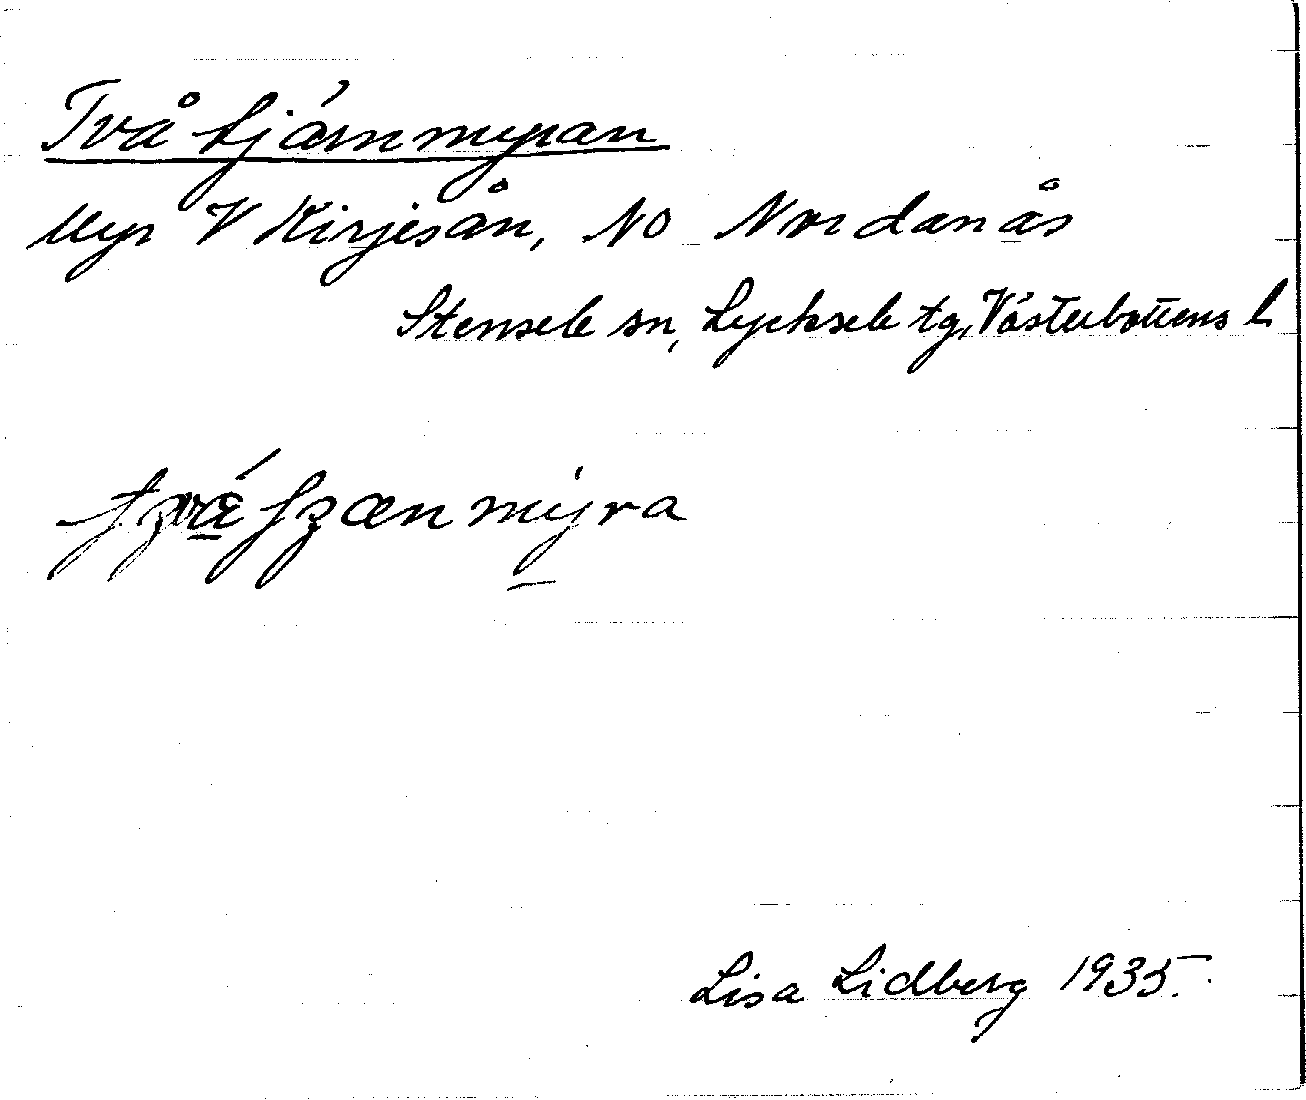 Två tjärnmyran
Myr V Kirjesån, NO Nordanås
Stensele sn, Lycksele tg, Västerbottens l
Lisa Lidberg 1935.